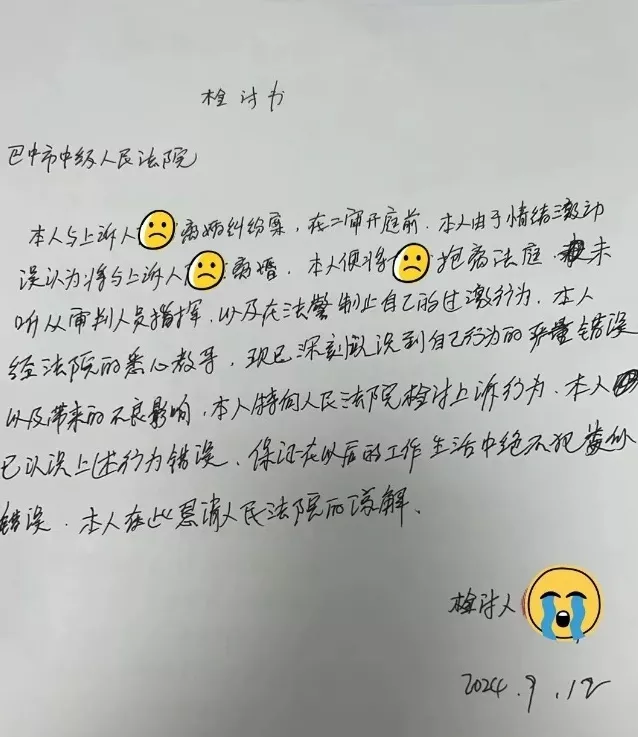 检讨书
巴中市中级人民法院
本人与上诉人 离婚纠纷案，在二审开庭前，本人由于情绪激动
误认为将与上诉人 离婚．本人便将 抱离法庭 未
听从审判人员指挥，以及在法警制止自己的过激行为．本人
经法院的悉心教导，现已深刻认识到自己行为的严重错误
以及带来的不良影响，本人特向人民法院检讨上诉行为．本人
已认识上述行为错误、保证在以后的工作生活中绝不犯类似
错误．本人在此恳请人民法院的谅解、
检讨人
2024.9.12